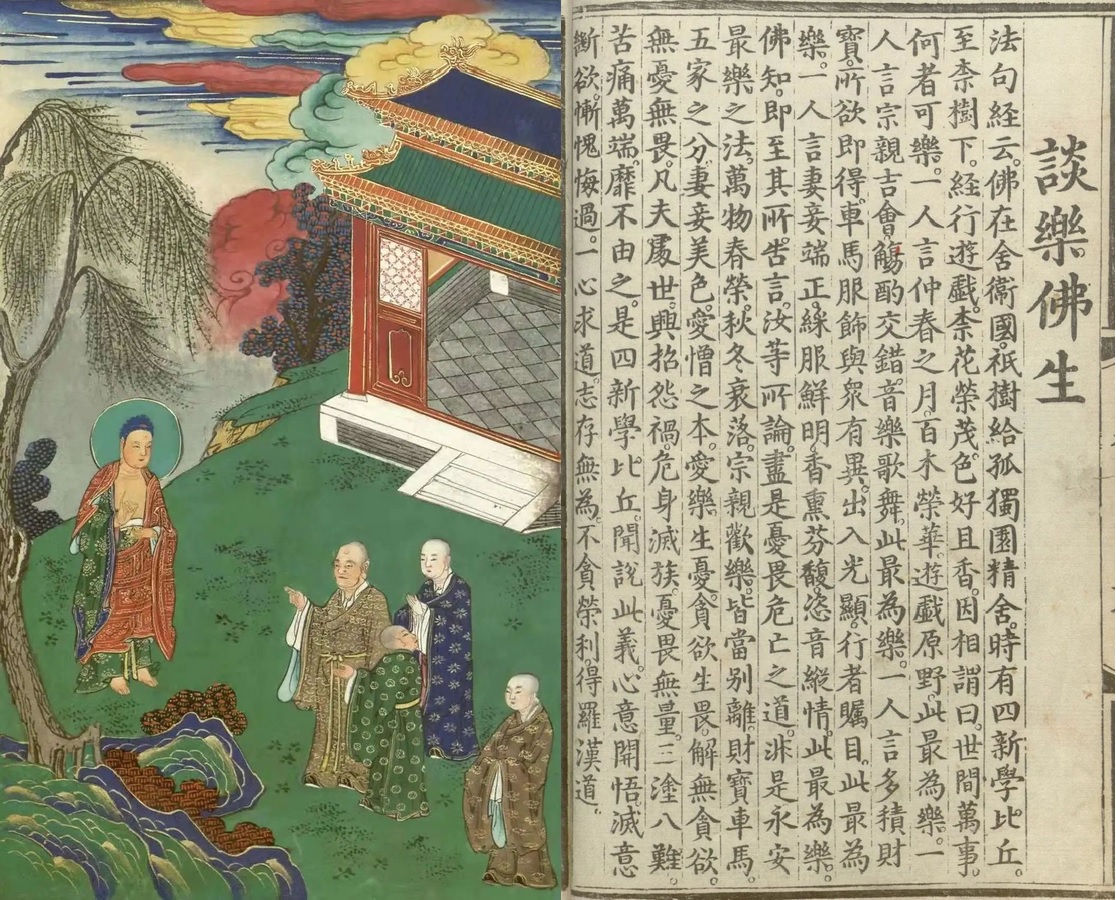 談樂佛生
法句経云。佛在舍衞國。祇樹給孤獨園精舍。時有四新學比丘。
至柰樹下。経行遊戲。柰花榮茂。色好且香。因相謂曰。世間萬事。
何者可樂。一人言仲春之月。百木榮華。遊戲原野。此最為樂。一
人言宗親吉會。觴酌交錯。音樂歌舞。此最為樂。一人言多積財
寶。所欲即得。車馬服飾。與衆有異。出入光顯。行者矚目。此最為
樂。一人言妻妾端正。綵服鮮明。香熏芬馥。恣音縱情。此最為樂。
佛知。即至其所。告言。汝等所論。盡是憂畏危亡之道。非是永安
最樂之法。萬物春榮。秋冬衰落。宗親歡樂。皆當別離。財寶車馬。
五家之分。妻妾美色。愛憎之本。愛樂生憂。貪欲生畏。解無貪欲。
無憂無畏。凡夫處世。興招怨禍。危身滅族。憂畏無量。三塗八難。
苦痛萬端。靡不由之。是四新學比丘。聞說此義。心意開悟。滅意
斷欲。慚愧悔過。一心求道。志存無為。不貪榮利。得羅漢道。